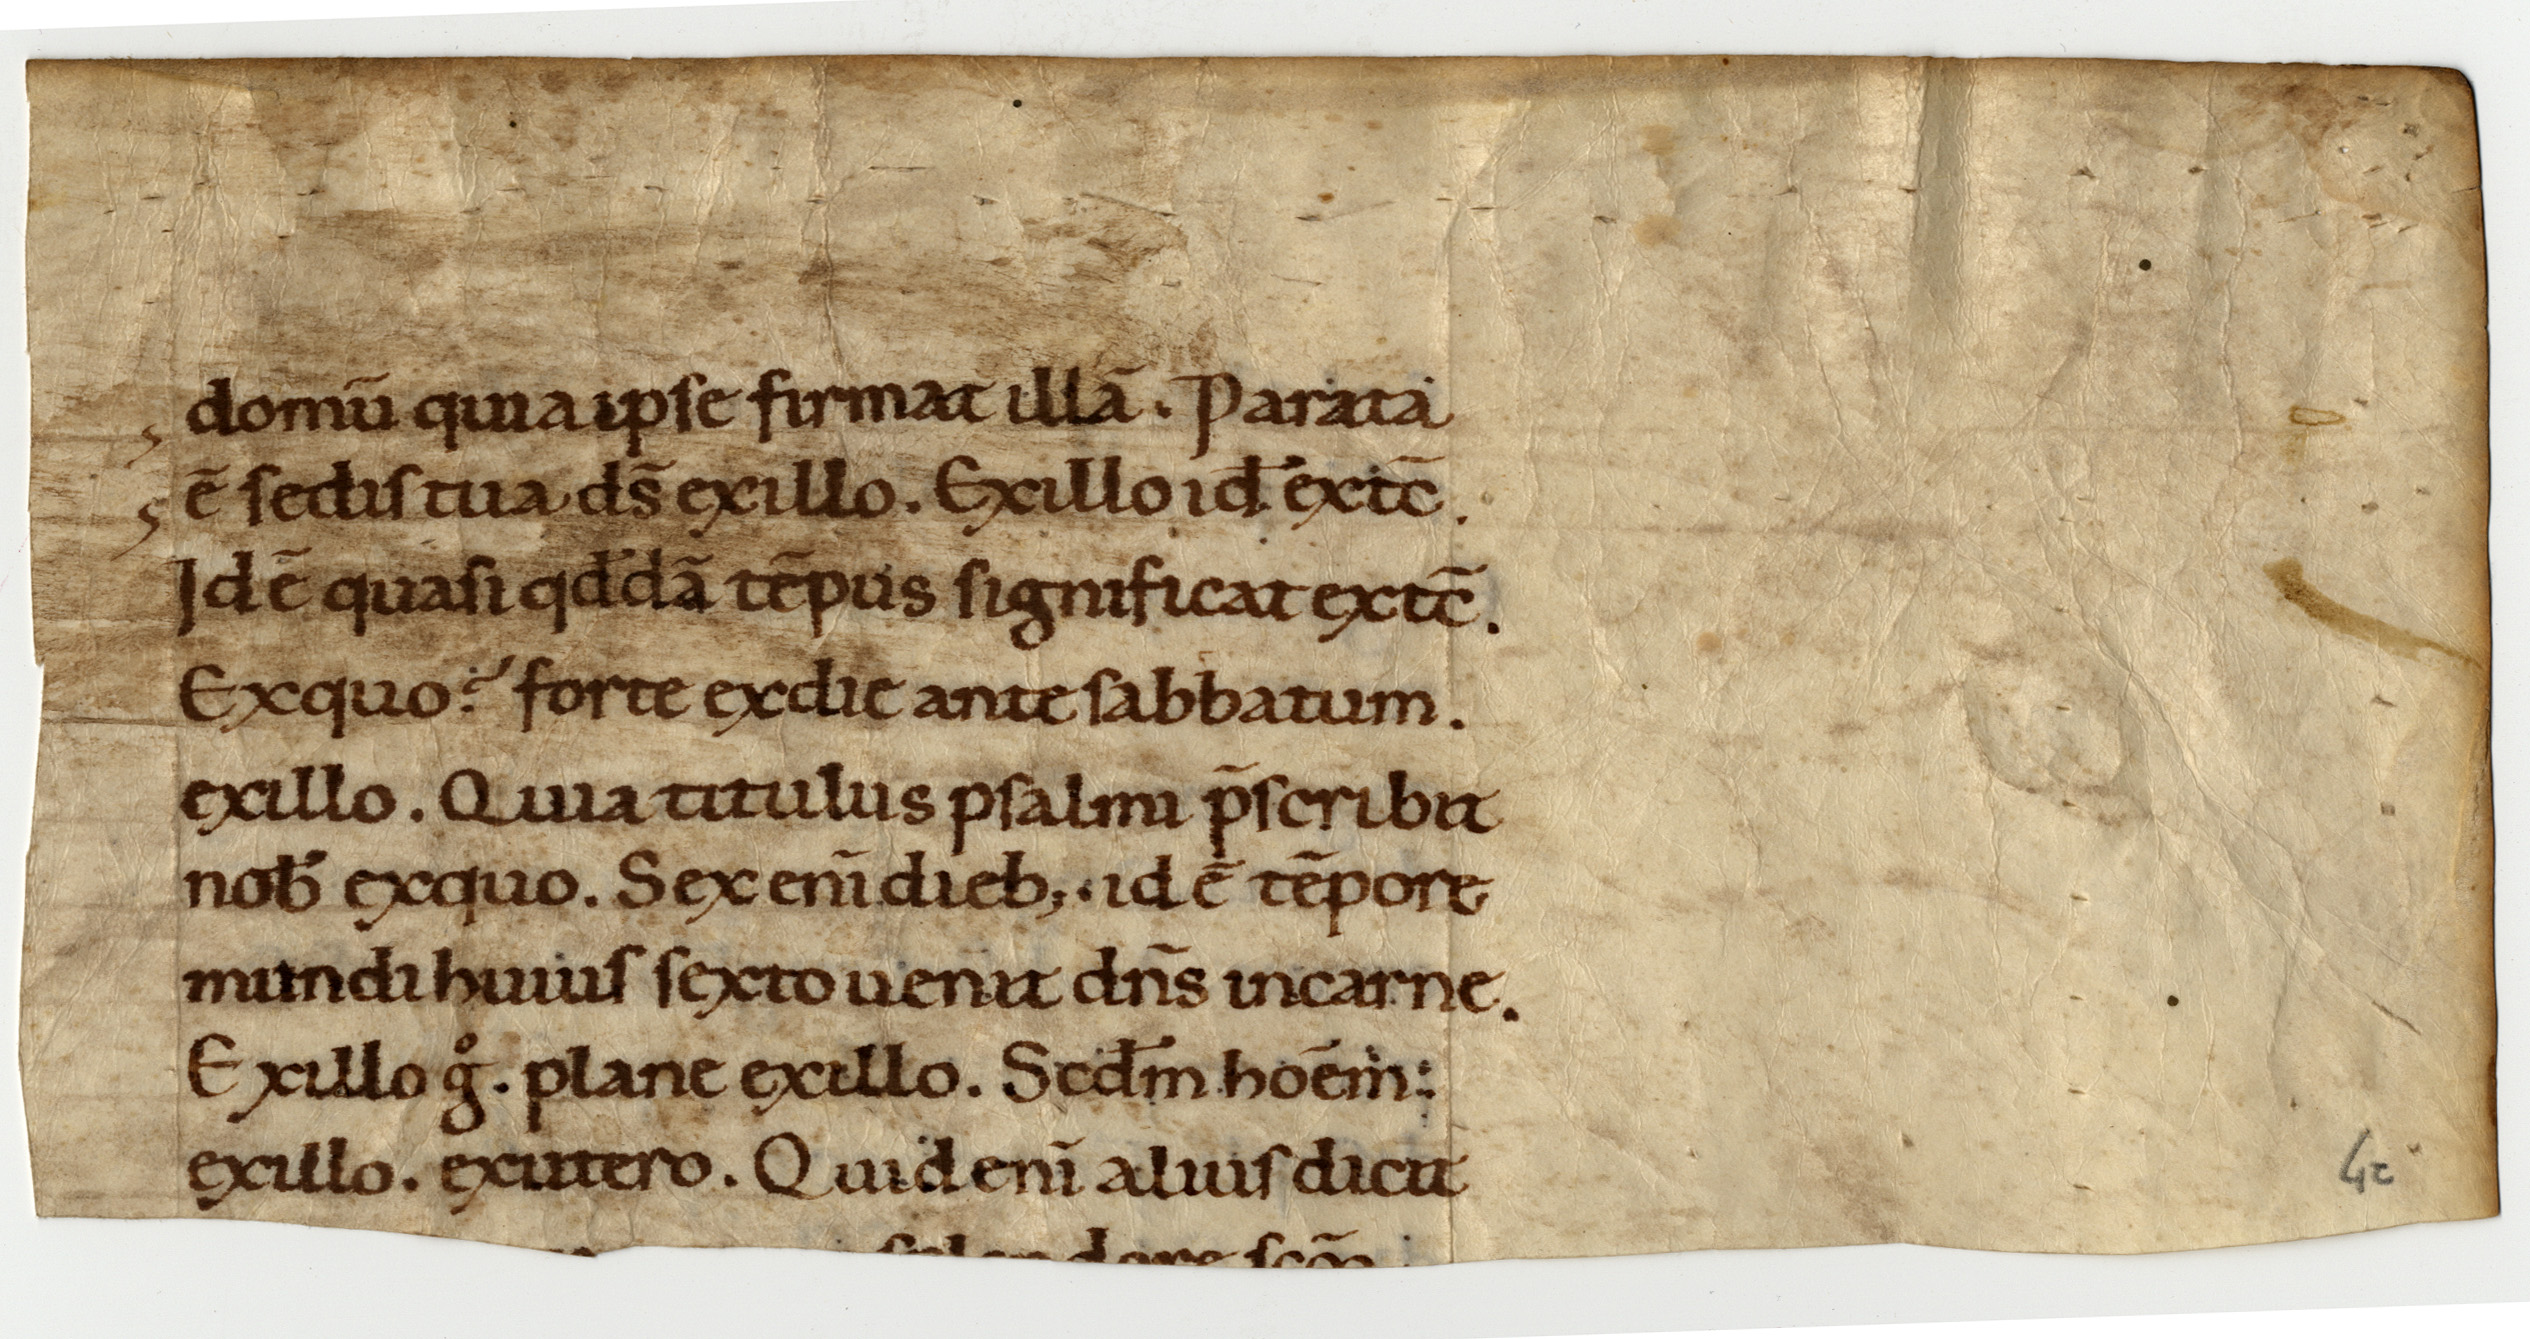 domū quia ipse firmat illā. Parata
ē sedis tua ds̄ exillo. Exillo id ̓ extc̄.
Id ē quasi qdd̓ā tēpus significat extc̄.
Exquo? forte exdie ante sabbatum.
exillo. Quia titulus psalmi p̄scribit
nob̓ exquo. Sex enī dieb;. id ē tēpore
mundi huius sexto uenit dn̄s incarne.
Exillo g̊. plane exillo. Scdm̄ hoēm:
exillo. exutero. Quid enī aluis dicit
splendore scō
4c